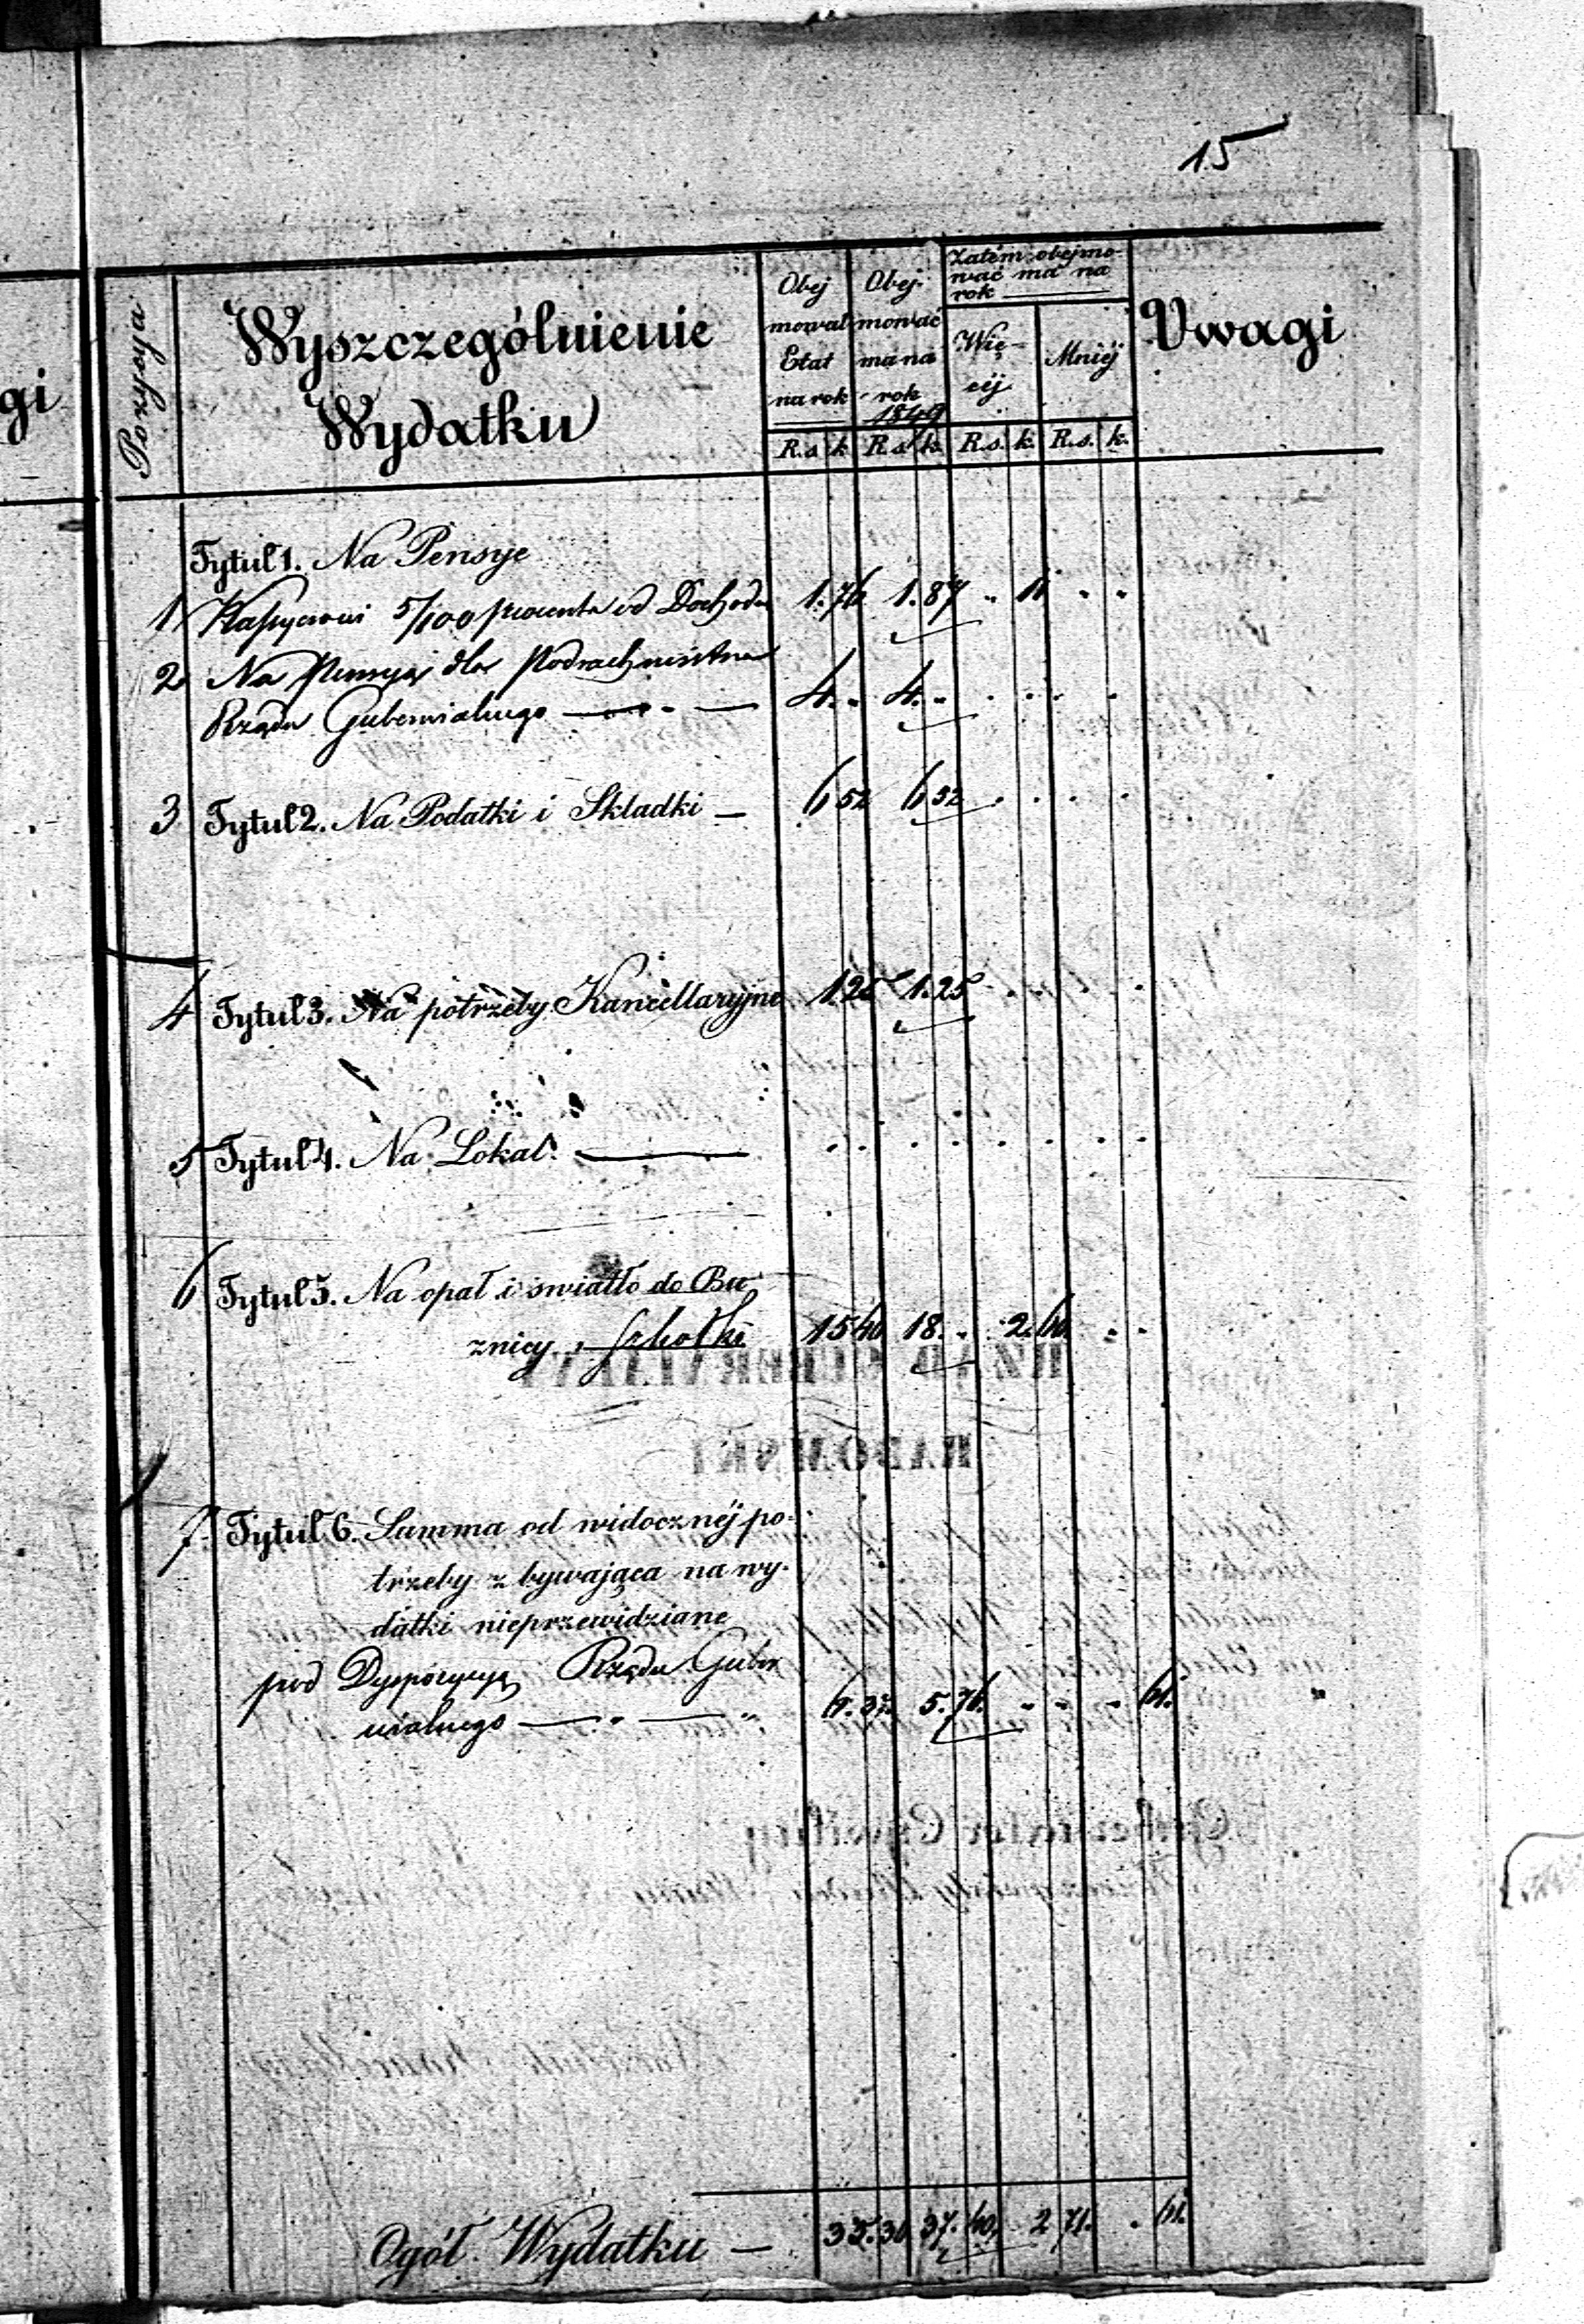 15
gi
Pozycya
Wyszczególnienie
Wydatku
Obej
mował
Etat
na rok
Obej-
mować
ma na
rok
1849
Zatém obejmo-
wać ma na
rok
Wię-
céj
Mniéj
Uwagi
R.s. k. R.s. k. R.s. k. R.s. k.
Tytuł 1. Na Pensye
1 Kassyerowi 5/100 procentu od Dochodu 1.76 1.87 " 11 " "
2 Na Pensyą dla Podrachmistrza
Rządu Gubernialnego — " — 4. " 4. " " " " "
3 Tytuł 2. Na Podatki i Składki — 6 52 6 52 " " " "
4 Tytuł 3. Na potrzeby Kancellaryjne 1.25 1.25 " " " "
5 Tytuł 4. Na Lokal — " " " " " " " "
6 Tytuł 5. Na opał i światło do Bu-
znicy, Szkołki 15 40 18. " 2. 60. " "
RZĄD GUBERNIALNY
RADOMSKI
7. Tytuł 6. Summa od widocznéj po-
trzeby zbywająca na wy-
datki nieprzewidziane
pod Dyspozycyą Rządu Guber
nialnego — " — " 6. 37. 5. 76. " " " 61.
Gubernator Cywilny
Ogół Wydatku — 35. 30 37. 40. 2 71. " 61.